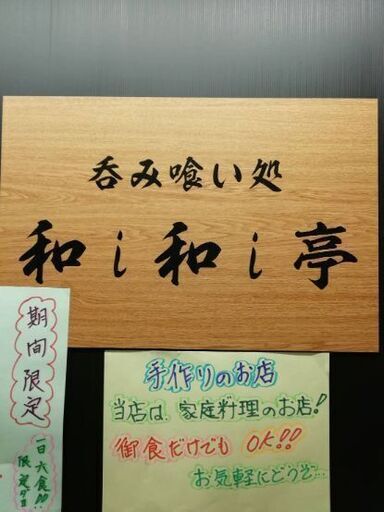 呑み喰い処
和い和い亭
期間限定
一日大食!!
手作りのお店
当店は、家庭料理のお店!
御食だけでも OK!!
お気軽にどうぞ…